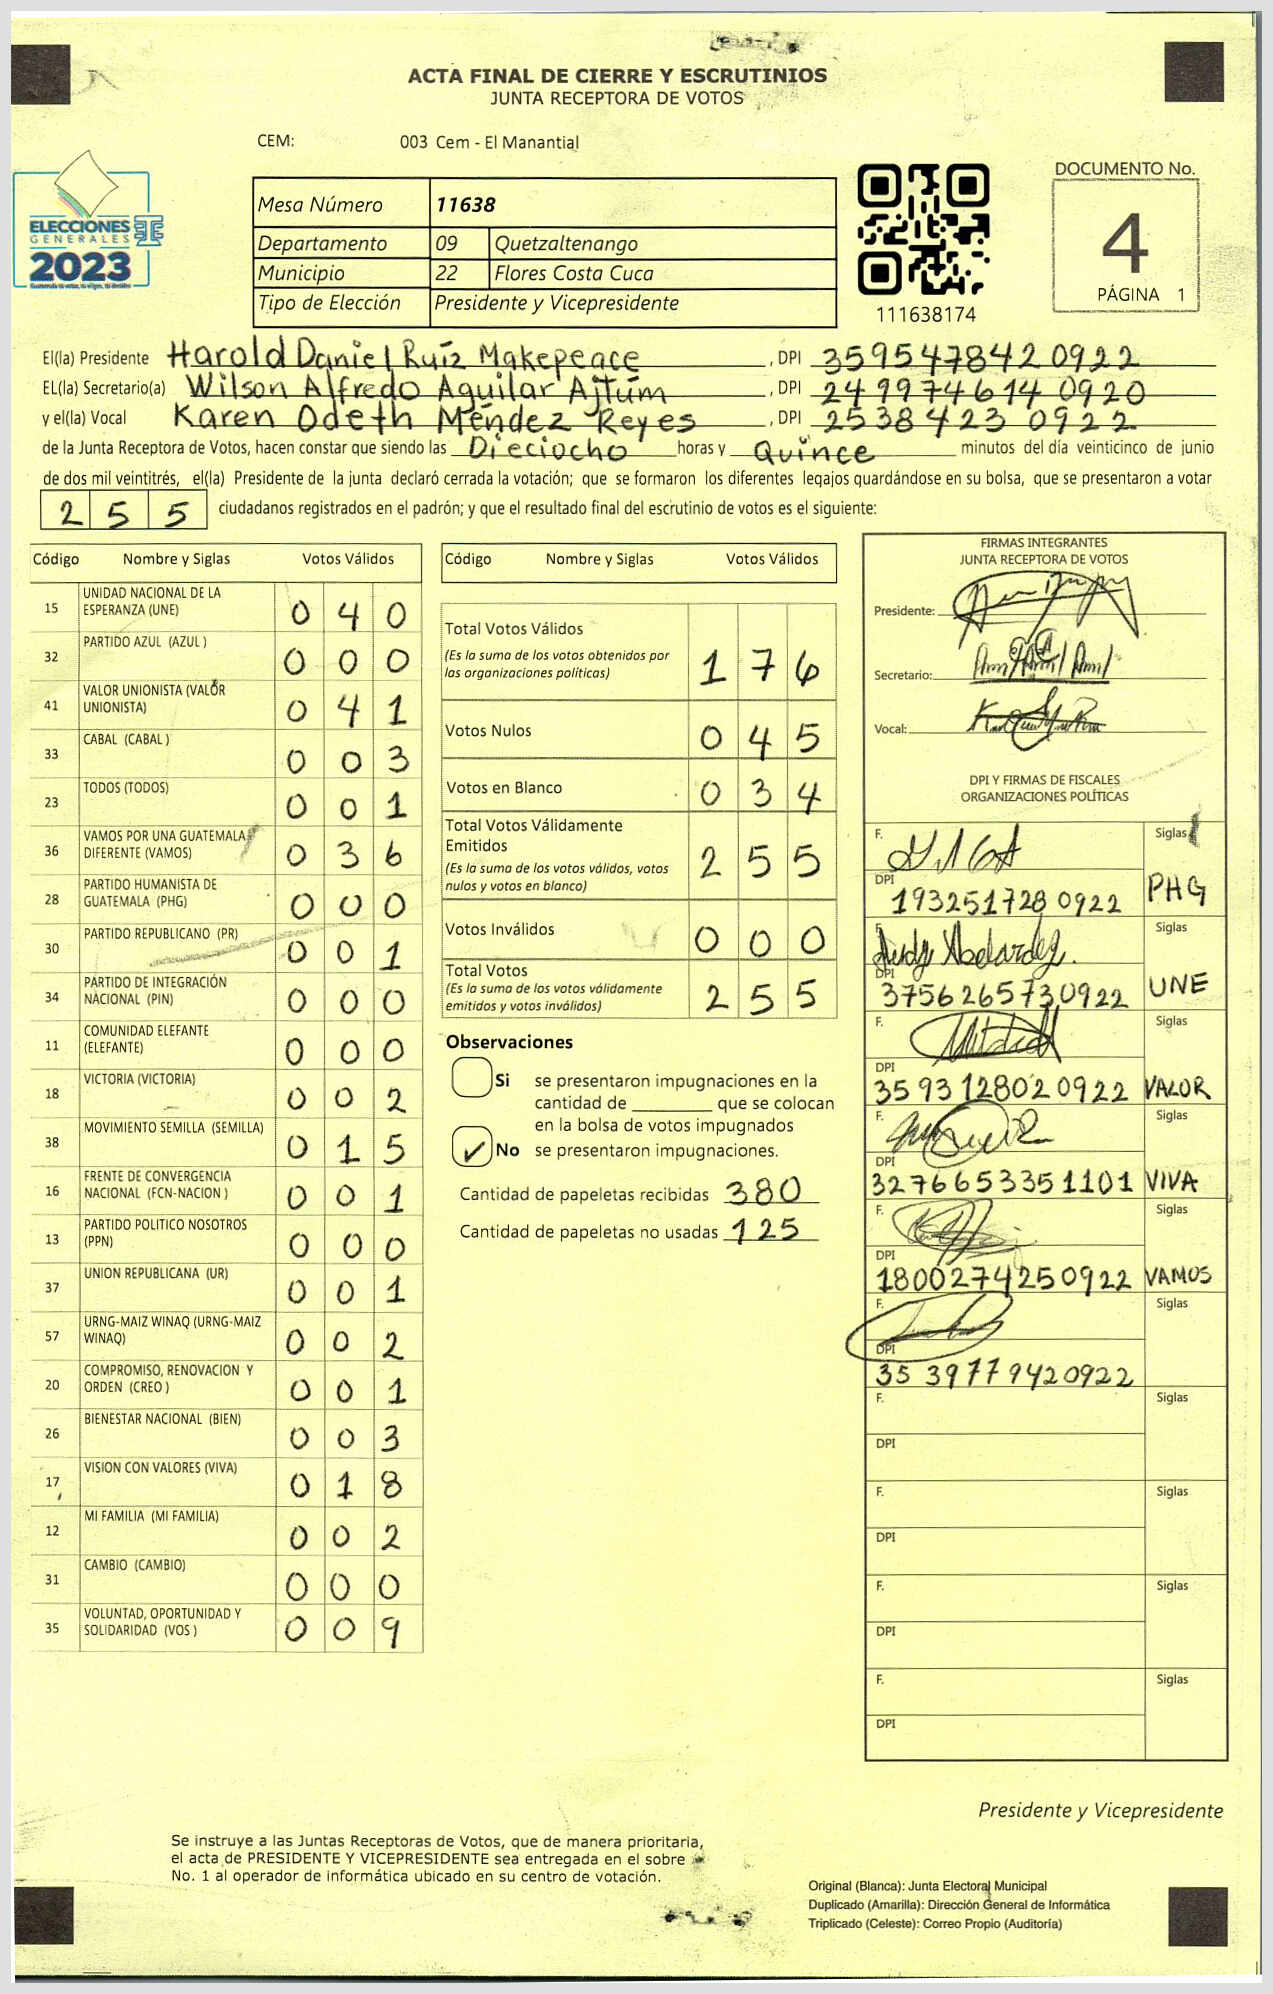 ACTA FINAL DE CIERRE Y ESCRUTINIOS
JUNTA RECEPTORA DE VOTOS
CEM: 003 Cem - El Manantial
ELECCIONES
GENERALES
2023
Mesa Número 11638
Departamento 09 Quetzaltenango
Municipio 22 Flores Costa Cuca
Tipo de Elección Presidente y Vicepresidente
111638174
DOCUMENTO No.
4
PÁGINA 1
El(la) Presidente Harold Daniel Ruíz Makepeace, DPI 3595478420922
EL(la) Secretario(a) Wilson Alfredo Aguilar Ajtúm, DPI 2499746140920
y el(la) Vocal Karen Odeth Méndez Reyes, DPI 2538423 0922
de la Junta Receptora de Votos, hacen constar que siendo las Dieciocho horas y Quince minutos del día veinticinco de junio
de dos mil veintitrés, el(la) Presidente de la junta declaró cerrada la votación; que se formaron los diferentes legajos guardándose en su bolsa, que se presentaron a votar
255 ciudadanos registrados en el padrón; y que el resultado final del escrutinio de votos es el siguiente:
Código Nombre y Siglas Votos Válidos
15 UNIDAD NACIONAL DE LA ESPERANZA (UNE) 040
32 PARTIDO AZUL (AZUL ) 000
41 VALOR UNIONISTA (VALOR UNIONISTA) 041
33 CABAL (CABAL ) 003
23 TODOS (TODOS) 001
36 VAMOS POR UNA GUATEMALA DIFERENTE (VAMOS) 036
28 PARTIDO HUMANISTA DE GUATEMALA (PHG) 000
30 PARTIDO REPUBLICANO (PR) 001
34 PARTIDO DE INTEGRACIÓN NACIONAL (PIN) 000
11 COMUNIDAD ELEFANTE (ELEFANTE) 000
18 VICTORIA (VICTORIA) 002
38 MOVIMIENTO SEMILLA (SEMILLA) 015
16 FRENTE DE CONVERGENCIA NACIONAL (FCN-NACION ) 001
13 PARTIDO POLITICO NOSOTROS (PPN) 000
37 UNION REPUBLICANA (UR) 001
57 URNG-MAIZ WINAQ (URNG-MAIZ WINAQ) 002
20 COMPROMISO, RENOVACION Y ORDEN (CREO ) 001
26 BIENESTAR NACIONAL (BIEN) 003
17 VISION CON VALORES (VIVA) 018
12 MI FAMILIA (MI FAMILIA) 002
31 CAMBIO (CAMBIO) 000
35 VOLUNTAD, OPORTUNIDAD Y SOLIDARIDAD (VOS ) 009
Código Nombre y Siglas Votos Válidos
Total Votos Válidos 176
(Es la suma de los votos obtenidos por
las organizaciones políticas)
Votos Nulos 045
Votos en Blanco 034
Total Votos Válidamente
Emitidos 255
(Es la suma de los votos válidos, votos
nulos y votos en blanco)
Votos Inválidos 000
Total Votos 255
(Es la suma de los votos válidamente
emitidos y votos inválidos)
Observaciones
Si se presentaron impugnaciones en la
cantidad de ________ que se colocan
en la bolsa de votos impugnados
✓ No se presentaron impugnaciones.
Cantidad de papeletas recibidas 380
Cantidad de papeletas no usadas 125
FIRMAS INTEGRANTES
JUNTA RECEPTORA DE VOTOS
Presidente:
Secretario:
Vocal:
DPI Y FIRMAS DE FISCALES
ORGANIZACIONES POLÍTICAS
F. Siglas
DPI 193251728 0922 PHG
F. Siglas
DPI 3756265730922 UNE
F. Siglas
DPI 3593128020922 VALOR
F. Siglas
DPI 3276653351101 VIVA
F. Siglas
DPI 1800274250922 VAMOS
F. Siglas
DPI 3539779420922
F. Siglas
DPI
F. Siglas
DPI
F. Siglas
DPI
F. Siglas
DPI
Presidente y Vicepresidente
Se instruye a las Juntas Receptoras de Votos, que de manera prioritaria,
el acta de PRESIDENTE Y VICEPRESIDENTE sea entregada en el sobre
No. 1 al operador de informática ubicado en su centro de votación.
Original (Blanca): Junta Electoral Municipal
Duplicado (Amarilla): Dirección General de Informática
Triplicado (Celeste): Correo Propio (Auditoría)